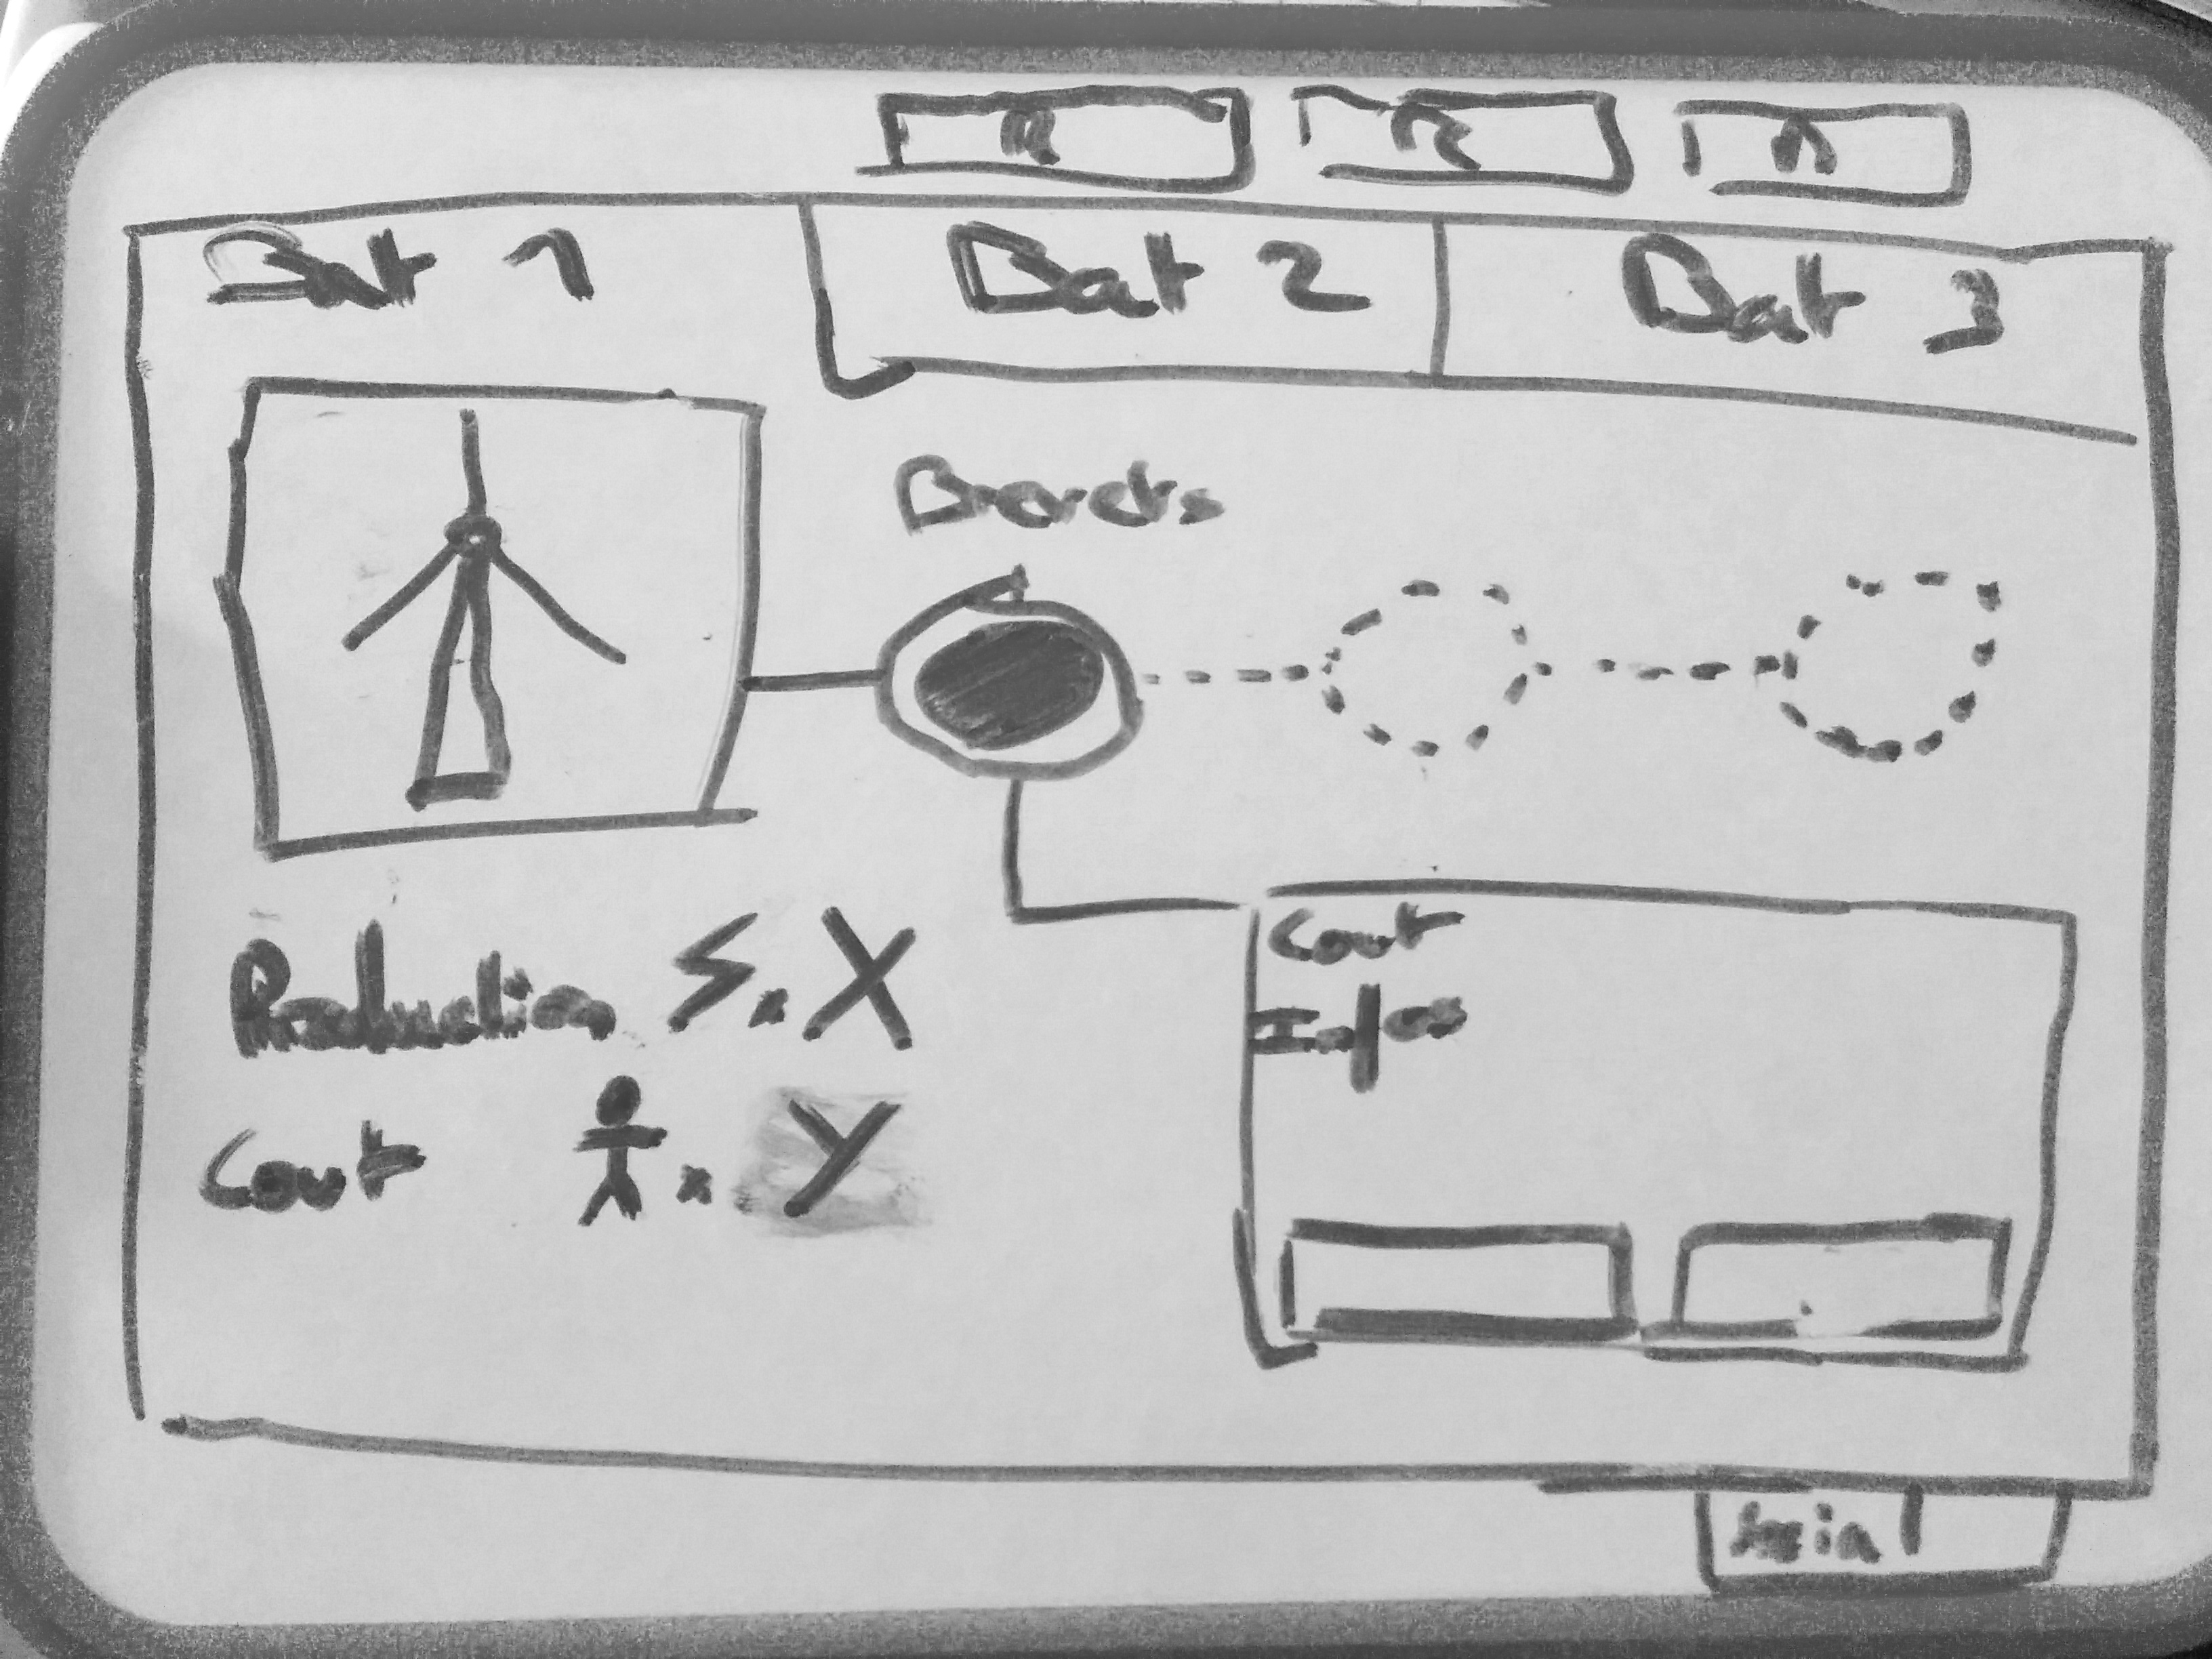 R R R
Bat 1 Bat 2 Bat 3
Production x X
Cout x Y
Cout
Infos